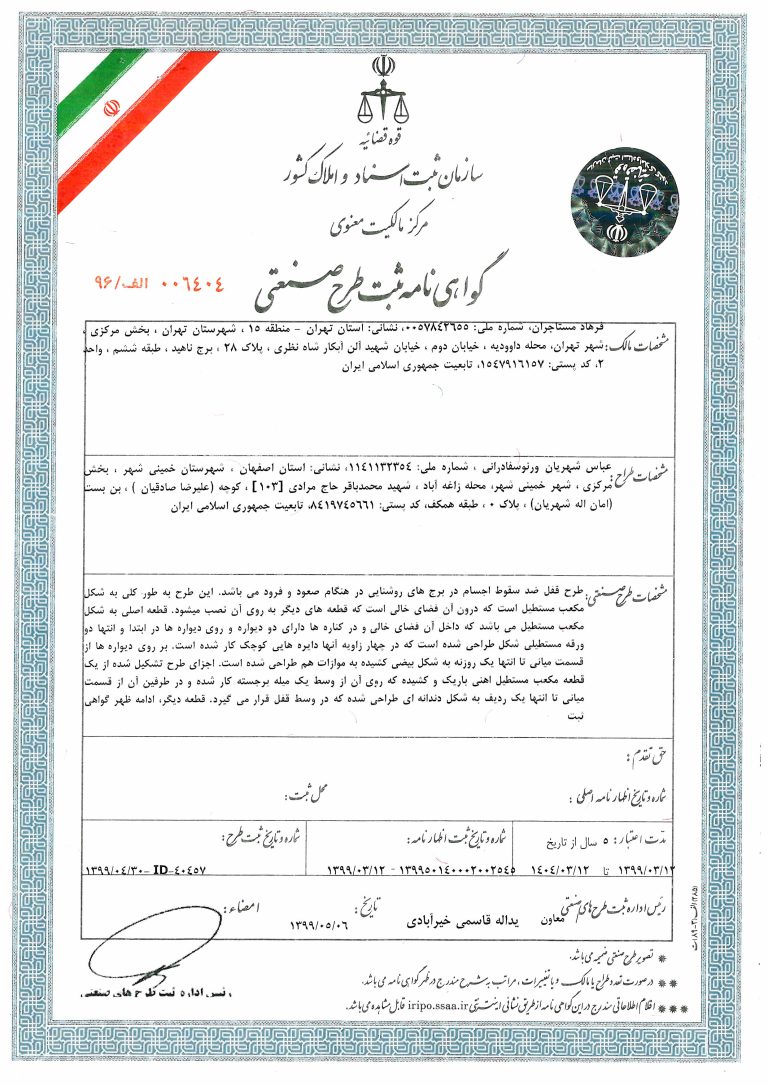 قوه قضائیه
سازمان ثبت اسناد و املاک کشور
مرکز مالکیت معنوی
گواهی نامه ثبت طرح صنعتی
۰۰۶۴۰۴ الف/۹۶
مشخصات مالک: فرهاد مستاجران، شماره ملی: ۰۰۵۷۸۴۲۶۵۵، نشانی: استان تهران - منطقه ۱۵ ، شهرستان تهران ، بخش مرکزی ،
شهر تهران، محله داوودیه ، خیابان دوم ، خیابان شهید آلن آبکار شاه نظری ، پلاک ۲۸ ، برج ناهید ، طبقه ششم ، واحد
۲، کد پستی: ۱۵۴۷۹۱۶۱۵۷، تابعیت جمهوری اسلامی ایران
مشخصات طراح: عباس شهریان ورنوسفادرانی ، شماره ملی: ۱۱۴۱۱۳۲۳۵۴، نشانی: استان اصفهان ، شهرستان خمینی شهر ، بخش
مرکزی ، شهر خمینی شهر، محله زاغه آباد ، شهید محمدباقر حاج مرادی [۱۰۳] ، کوچه (علیرضا صادقیان ) ، بن بست
(امان اله شهریان) ، پلاک ۰ ، طبقه همکف، کد پستی: ۸۴۱۹۷۴۵۶۶۱، تابعیت جمهوری اسلامی ایران
مشخصات طرح صنعتی: طرح قفل ضد سقوط اجسام در برج های روشنایی در هنگام صعود و فرود می باشد. این طرح به طور کلی به شکل
مکعب مستطیل است که درون آن فضای خالی است که قطعه های دیگر به روی آن نصب میشود. قطعه اصلی به شکل
مکعب مستطیل می باشد که داخل آن فضای خالی و در کناره ها دارای دو دیواره و روی دیواره ها در ابتدا و انتها دو
ورقه مستطیلی شکل طراحی شده است که در چهار زاویه آنها دایره هایی کوچک کار شده است. بر روی دیواره ها از
قسمت میانی تا انتها یک روزنه به شکل بیضی کشیده به موازات هم طراحی شده است. اجزای طرح تشکیل شده از یک
قطعه مکعب مستطیل اهنی باریک و کشیده که روی آن از وسط یک میله برجسته کار شده و در طرفین آن از قسمت
میانی تا انتها یک ردیف به شکل دندانه ای طراحی شده که در وسط قفل قرار می گیرد. قطعه دیگر، ادامه ظهر گواهی
ثبت
حق تقدم:
شماره و تاریخ اظهارنامه اصلی: محل ثبت:
مدت اعتبار: ۵ سال از تاریخ
۱۳۹۹/۰۳/۱۲ تا ۱۴۰۴/۰۳/۱۲
شماره و تاریخ ثبت اظهارنامه:
۱۳۹۹۵۰۱۴۰۰۰۲۰۰۲۵۴۵ - ۱۳۹۹/۰۳/۱۲
شماره و تاریخ ثبت طرح:
ID-۴۰۴۵۷ -۱۳۹۹/۰۴/۳۰
رئیس اداره ثبت طرح های صنعتی
معاون یداله قاسمی خیرآبادی
تاریخ:
۱۳۹۹/۰۵/۰۶
امضاء:
رئیس اداره ثبت طرح های صنعتی
* تصویر طرح صنعتی ضمیمه می باشد.
* * در صورت تعدد طراح یا مالک و یا تغییرات، مراتب به شرح مندرج در ظهر گواهی نامه می باشد.
* * * اقلام اطلاعاتی مندرج در این گواهی نامه از طریق نشانی اینترنتی iripo.ssaa.ir قابل مشاهده می باشد.